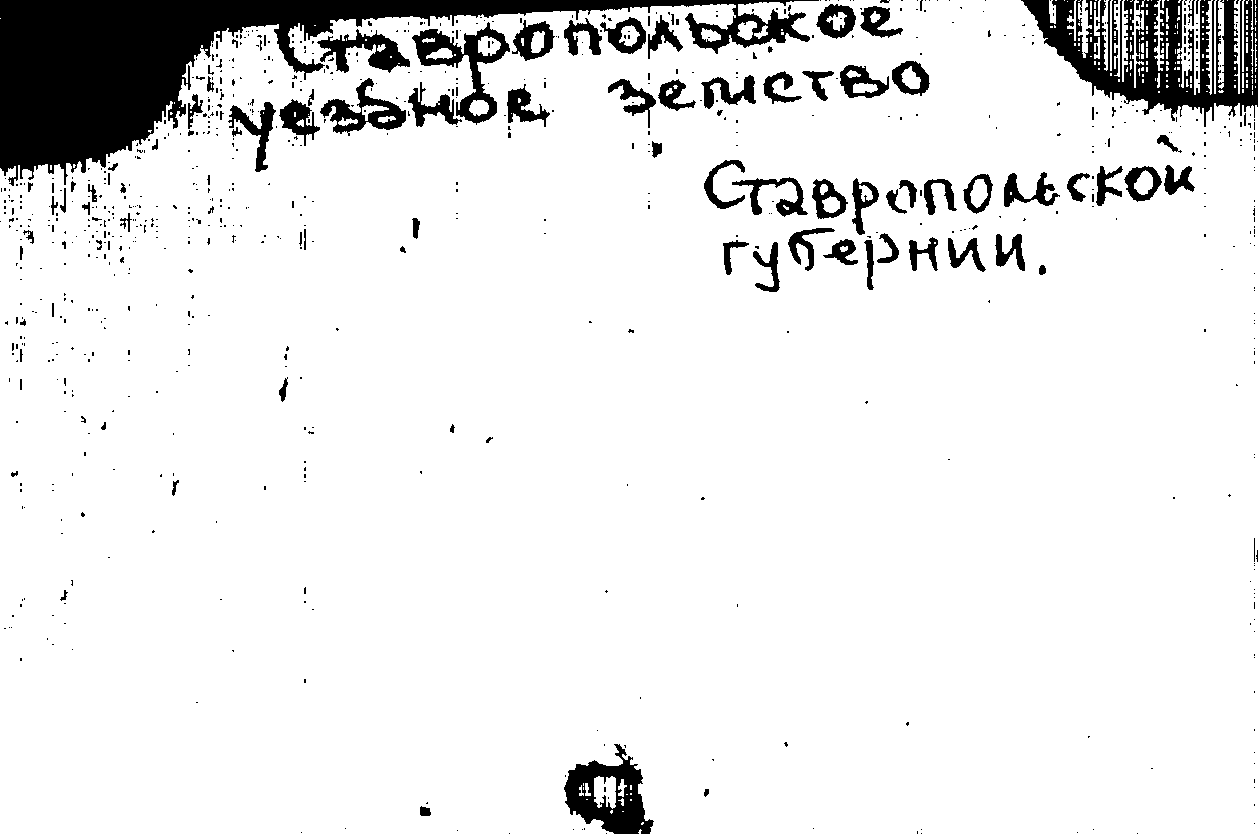 Ставропольское
уездное земство
Ставропольской
губернии.